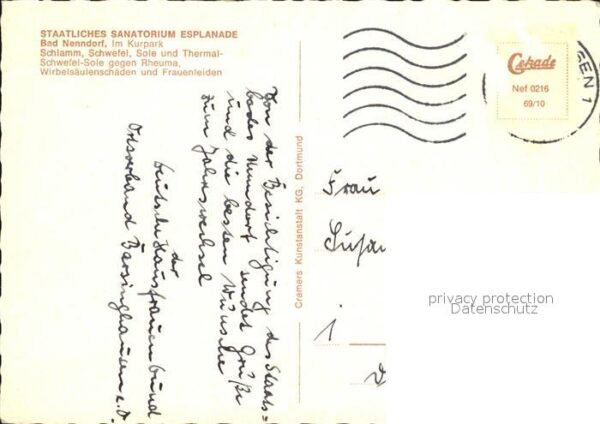 STAATLICHES SANATORIUM ESPLANADE
Bad Nenndorf, Im Kurpark
Schlamm, Schwefel, Sole und Thermal-
Schwefel-Sole gegen Rheuma,
Wirbelsäulenschäden und Frauenleiden
Cekade
Nef 0216
69/10
GEN 1
Von der Besichtigung des Staats=
bades Nenndorf sendet Grüße
und die besten Wünsche
zum Jahreswechsel
der
Deutsche Hausfrauenbund
Ortsverband Barsinghausen a. D.
Cramers Kunstanstalt KG, Dortmund
Frau
privacy protection
Datenschutz